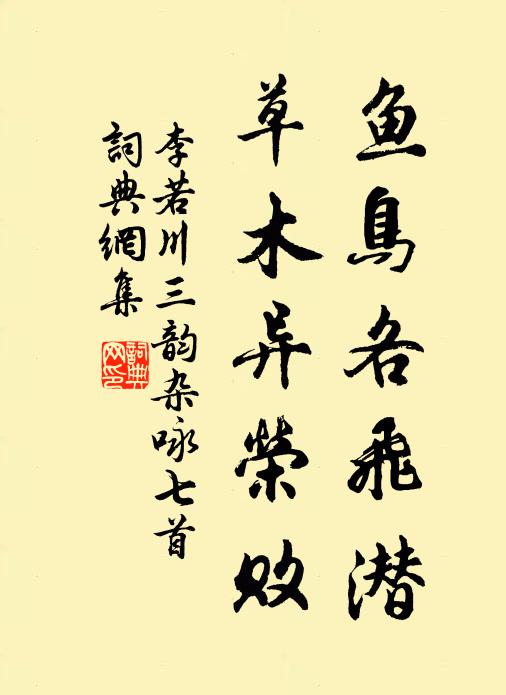 鱼鳥各飛潜
草木异榮敗
李若川三韵杂咏七首
詞典網集
詞典网印